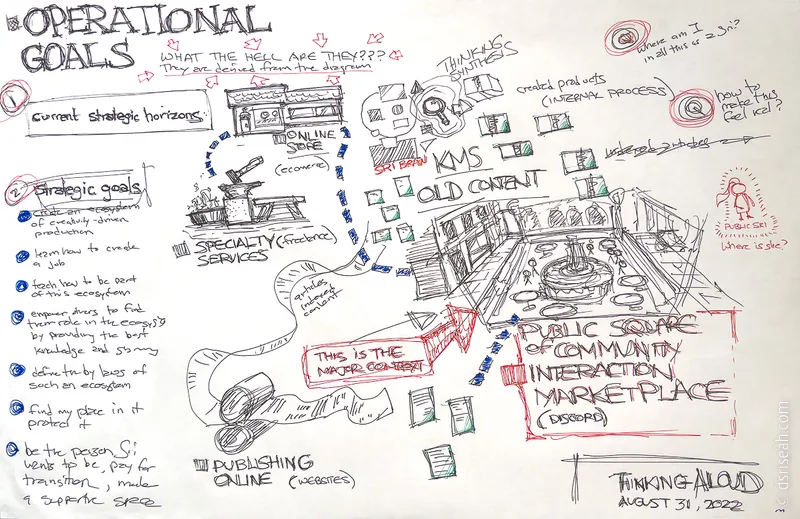 OPERATIONAL
GOALS
WHAT THE HELL ARE THEY???
They are derived from the diagram
1
Current strategic horizons
2
Strategic goals
create an ecosystem
of creativity-driven
production
learn how to create
a job
teach how to be part
of this ecosystem
empower others to find
their role in the ecosys
by providing the best
knowledge and
define the by laws of
such an ecosystem
find my place in it
protect it
be the person Sri
wants to be, pay for
transition, make
a supportive space
ONLINE
STORE
(ecommerce)
SPECIALTY (freelance)
SERVICES
articles
indexed
content
THINKING
SYNTHESIS
SRI BRAIN
KMS
OLD CONTENT
created products
(INTERNAL PROCESS)
Where am I
in all this as a Sri?
how to
make this
feel real?
PUBLIC SRI
Where is she?
THIS IS THE
MAJOR CONTEXT
PUBLIC SQUARE
of COMMUNITY
INTERACTION
MARKETPLACE
(DISCORD)
PUBLISHING
ONLINE (WEBSITES)
THINKING ALOUD
AUGUST 31, 2022
dsriseah.com